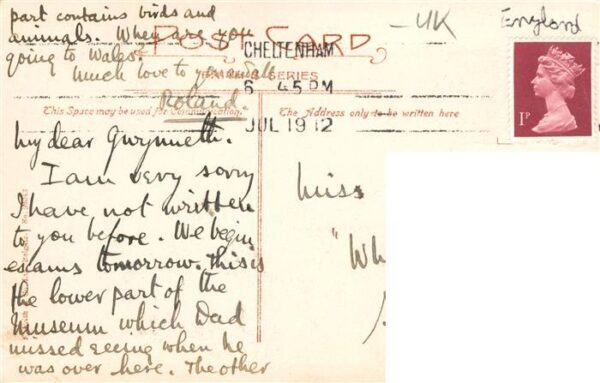 part contains birds and
animals. When are you
going to Wales.
Much love to you all
Roland.
POST CARD
SERIES
This Space may be used for Communication.
The Address only to be written here
- UK
England
CHELTENHAM
6 45 PM
JUL 19 12
1P
My dear Gwynneth.
I am very sorry
I have not written
to you before. We begin
exams tomorrow. This is
the lower part of the
museum which Dad
missed seeing when he
was over here. The other
Miss
"Wh